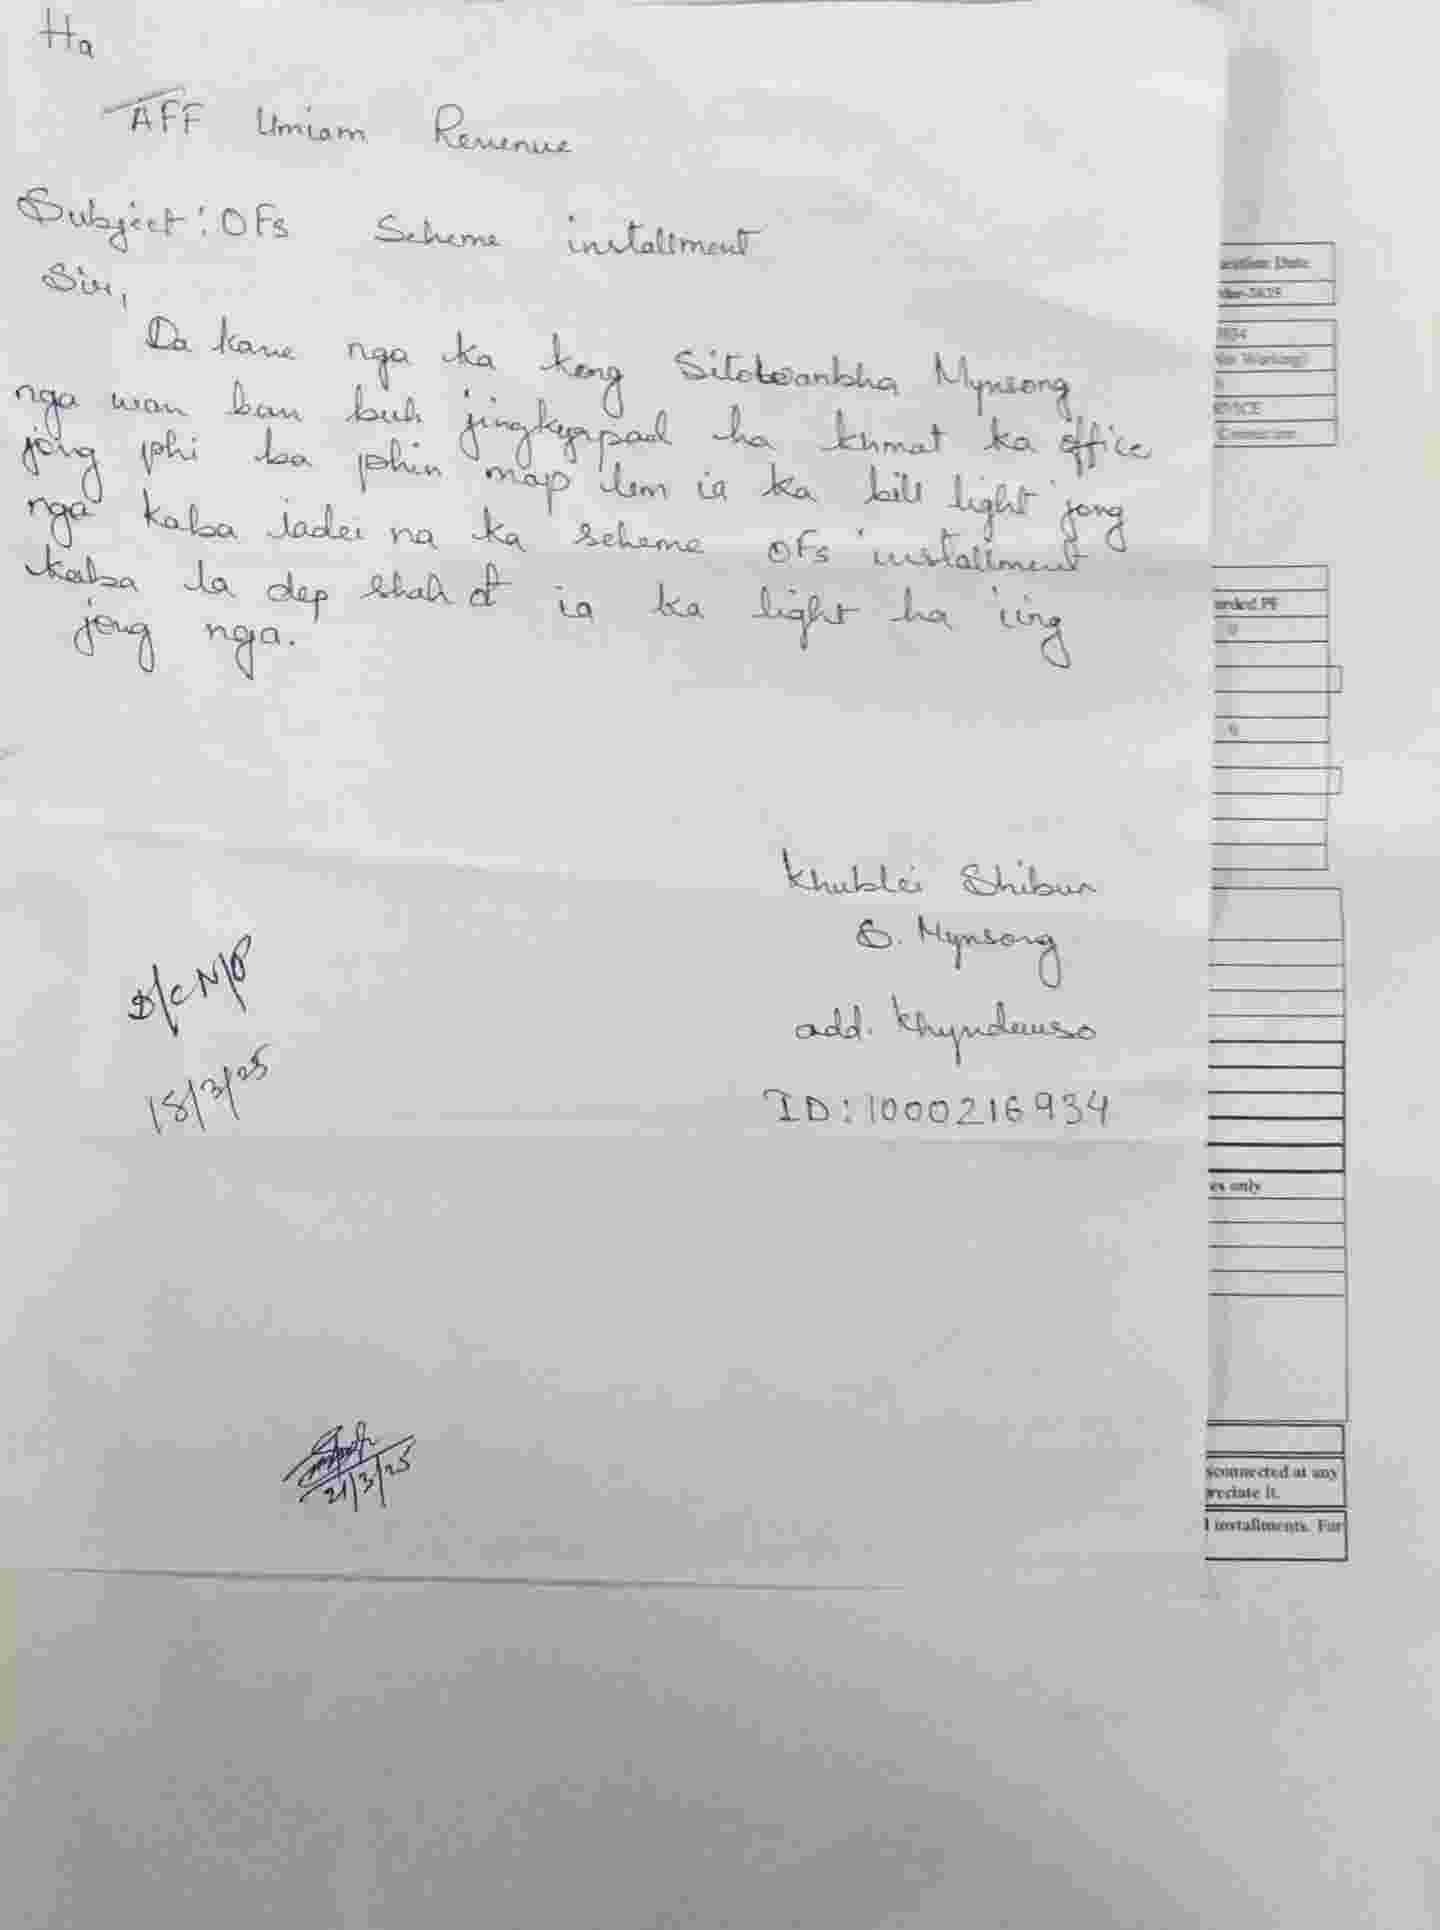 Ha
AFF Umiam Revenue
Subject: OFs Scheme installment
Sir,
Da kane nga ka kong Mynsong
nga wan ban buh jingkyrpad ha khmat ka office
jong phi ba phin map lem ia ka bill light jong
nga kaba iadei na ka scheme OFs installment
kaba la dep shah ot ia ka light ha iing
jong nga.
Khublei Shibun
S. Mynsong
add. Khyndewso
ID: 1000216934
D/C N/P
18/3/25
21/3/25
0
0
es only
sconnected at any
preciate it.
installments. For